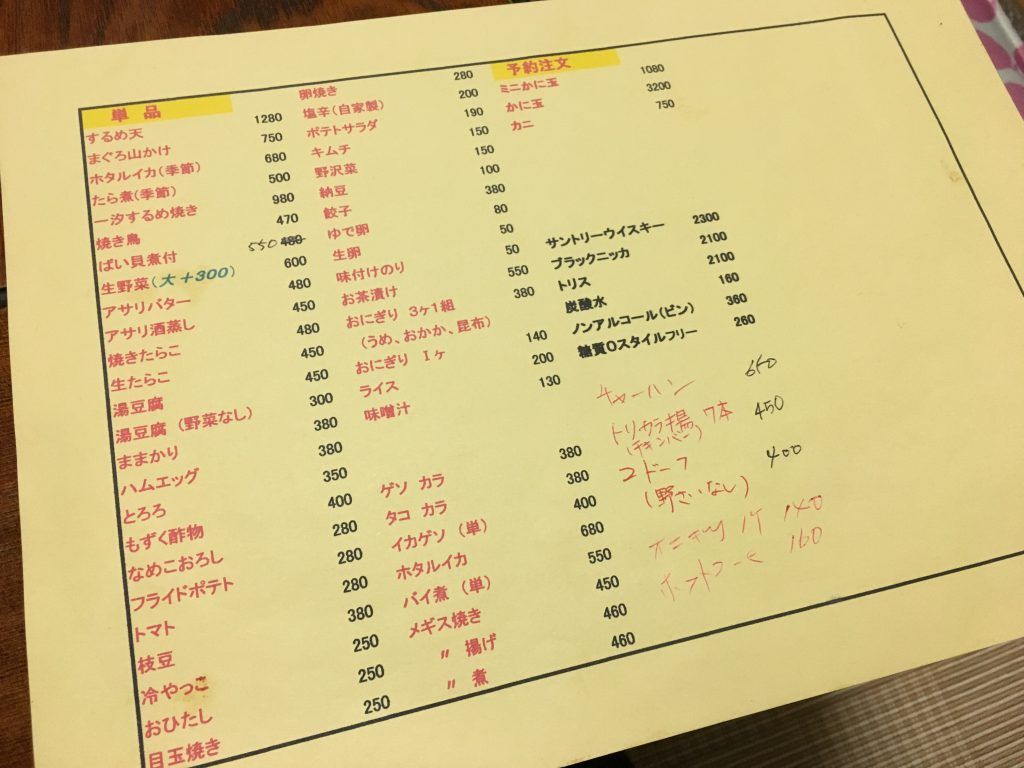 単品
するめ天 1280
まぐろ山かけ 750
ホタルイカ(季節) 680
たら煮(季節) 500
一汐するめ焼き 980
焼き鳥 470
ばい貝煮付 550 480
生野菜(大+300) 600
アサリバター 480
アサリ酒蒸し 450
焼きたらこ 480
生たらこ 450
湯豆腐 450
湯豆腐(野菜なし) 300
ままかり 380
ハムエッグ 380
とろろ 350
もずく酢物 400
なめこおろし 280
フライドポテト 280
トマト 280
枝豆 380
冷やっこ 250
おひたし 250
目玉焼き 250
卵焼き 280
塩辛(自家製) 200
ポテトサラダ 190
キムチ 150
野沢菜 150
納豆 100
餃子 380
ゆで卵 80
生卵 50
味付けのり 50
お茶漬け 550
おにぎり 3ヶ1組 380
(うめ、おかか、昆布)
おにぎり 1ヶ 140
ライス 200
味噌汁 130
ゲソ カラ 380
タコ カラ 380
イカゲソ(単) 400
ホタルイカ 680
バイ煮(単) 550
メギス焼き 450
〃 揚げ 460
〃 煮 460
予約注文
ミニかに玉 1080
かに玉 3200
カニ 750
サントリーウイスキー 2300
ブラックニッカ 2100
トリス 2100
炭酸水 160
ノンアルコール(ビン) 360
糖質0スタイルフリー 260
チャーハン 650
トリカラ揚 7本 450
(チキンバー)
ユドーフ 400
(野さいなし)
オニギリ 1ケ 140
ホットコーヒ 160